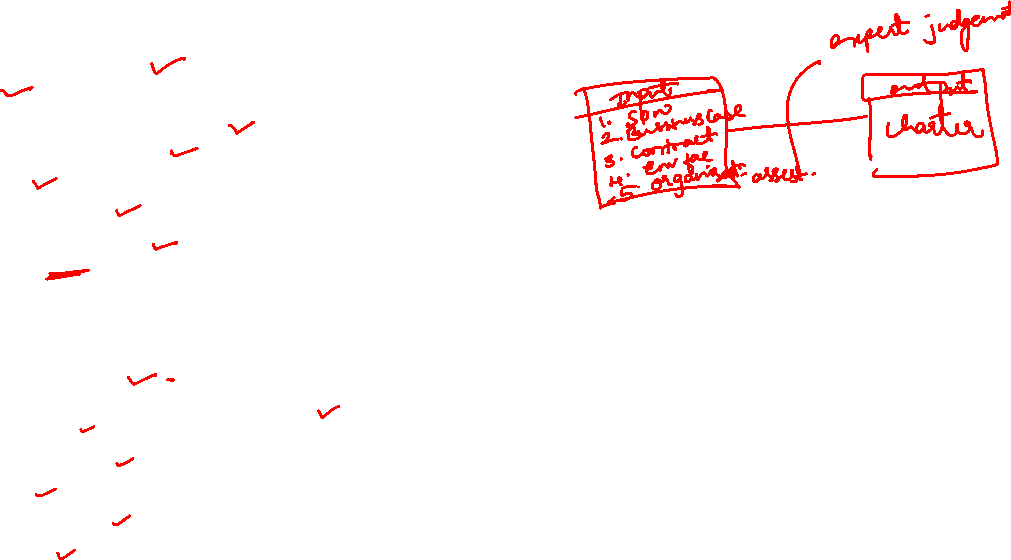 expert judgement
Input
1. SOW
2. Business case
3. contract
4. Env fac
5 organisat. assest.
output
charter